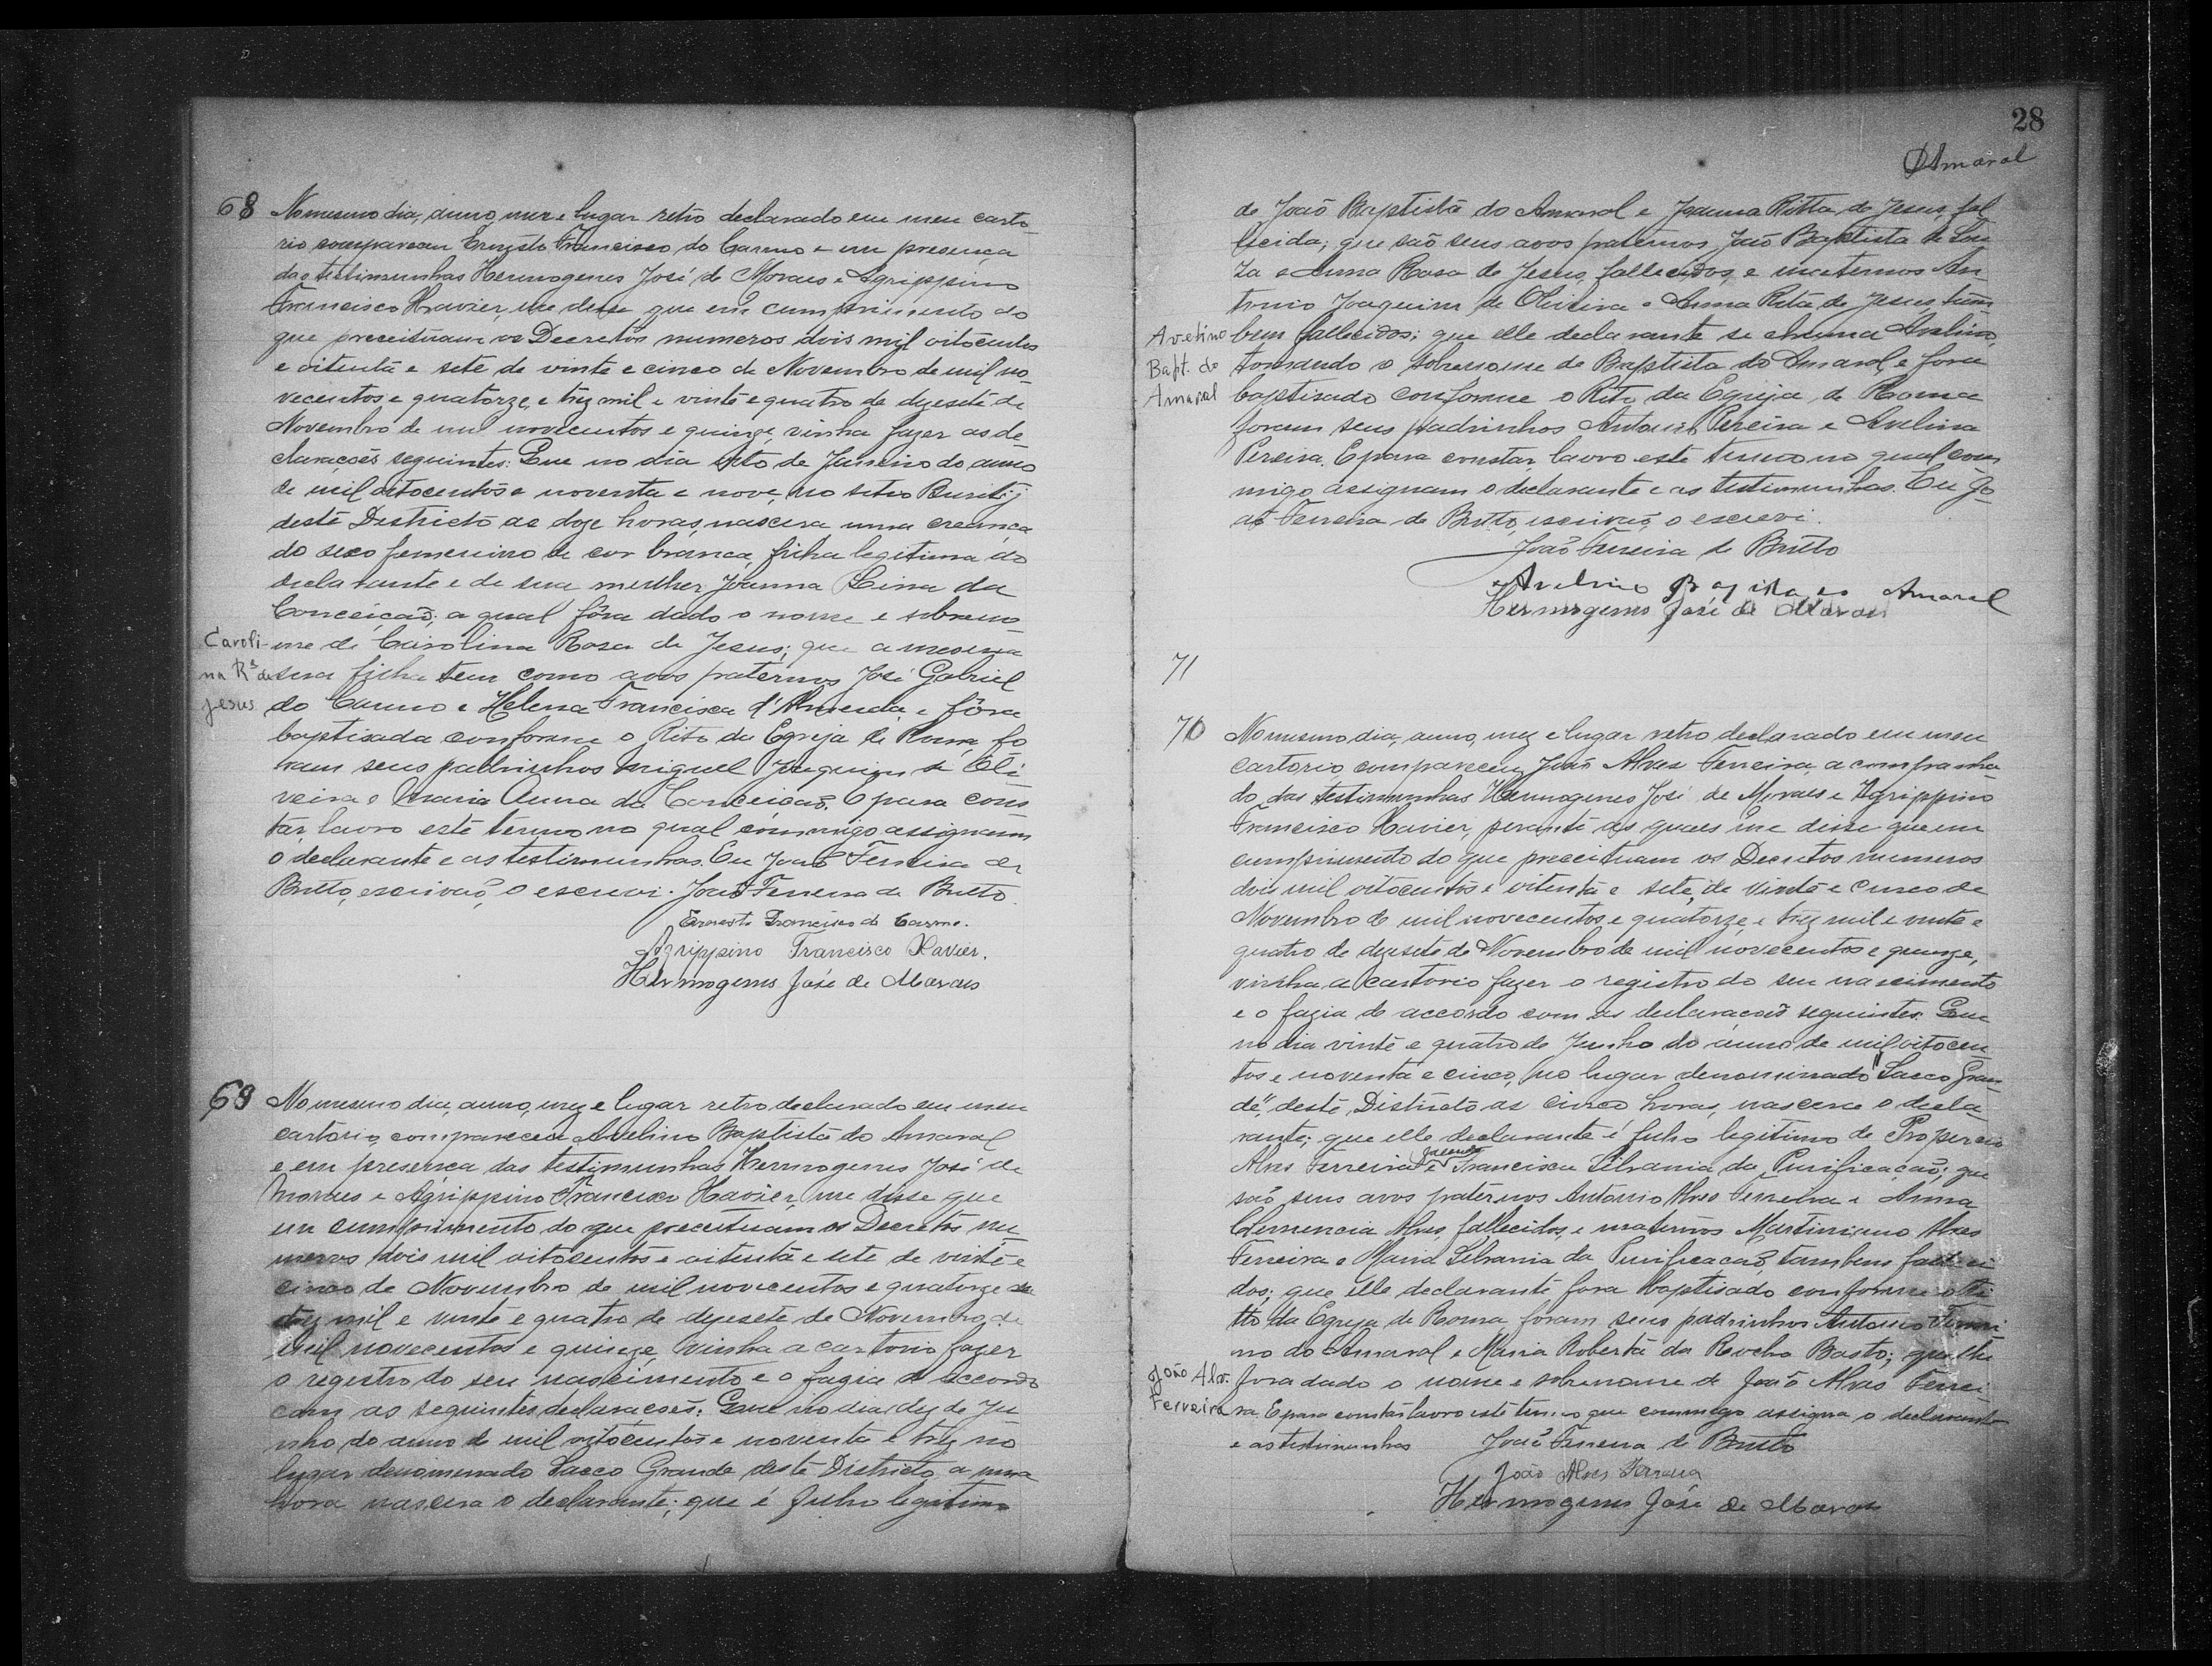 68 No mesmo dia, anno, mez e lugar retro declarado em meu carto
rio compareceu Ernesto Francisco do Carmo e em presença
das testimunhas Hermogenes José de Moraes e Agrippino
Francisco Xavier, me disse que em cumprimento do
que preceituam os Decretos numeros dois mil oitocentos
e oitenta e sete de vinte e cinco de Novembro de mil no-
vecentos e quatorze, e trez mil e vinte e quatro de dezesete de
Novembro de mil novecentos e quinze, vinha fazer as de-
clarações seguintes: Que no dia oito de Janeiro do anno
de mil oitocentos e noventa e nove, no sitio
deste Districto as doze horas, nascera uma creança
do sexo femenino de cor branca, filha legitima do
declarante e de sua mulher Joanna Lina da
Conceição; a qual fôra dado o nome e sobreno-
Caroli- me de Carolina Rosa de Jesus; que a mesma
na Rª de sua filha tem como avos paternos José Gabriel
Jesus do Carmo e Helena Francisca d'Almeida e fôra
baptisada conforme o Rito da Egreja de Roma, fo
ram seus padrinhos Miguel Joaquim de Oli
veira e Maria Anna da Conceição. E para cons
tar, lavro este termo no qual commigo assignam
o declarante e as testimunhas. Eu João Ferreira de
Britto, escrivão, o escrevi. João Ferreira de Britto.
Ernesto Francisco do Carmo.
Agrippino Francisco Xavier.
Hermogenes José de Moraes
69 No mesmo dia, anno, mez e lugar retro declarado em meu
cartorio, compareceu Avelino Baptista do Amaral
e em presença das testimunhas Hermogenes José de
Moraes e Agrippino Francisco Xavier, me disse que
em cumprimento do que preceituam os Decretos nu
meros dois mil oitocentos e oitenta e sete de vinte e
cinco de Novembro de mil novecentos e quatorze e
trez mil e vinte e quatro de dezesete de Novembro de
mil novecentos e quinze, vinha a cartorio fazer
o registro do seu nascimento e o fazia de accordo
com as seguintes declarações: Que no dia dez de Ju
nho do anno de mil oitocentos e noventa e trez no
lugar denominado Sacco Grande deste Districto, a uma
hora nascera o declarante; que é filho legitimo
28
Amaral
de João Baptista do Amaral e Joanna Ritta de Jesus, fal
lecida; que são seus avos paternos João Baptista de Sou
za e Anna Rosa de Jesus, fallecidos, e maternos An
tonio Joaquim de Oliveira e Anna Rita de Jesus tam
Avelino bem fallecidos; que elle declarante se chama Avelino,
Bapt. do tomando o sobrenome de Baptista do Amaral e fora
Amaral baptisado conforme o Rito da Egreja de Roma
foram seus padrinhos Antonio Pereira e Avelina
Pereira. E para constar, lavro este termo no qual com
migo assignam o declarante e as testimunhas. Eu Jo
ão Ferreira de Britto, escrivão, o escrevi.
João Ferreira de Britto
Avelino Baptista do Amaral
Hermogenes José de Moraes
71
70 No mesmo dia, anno, mez e lugar retro declarado em meu
cartorio, compareceu João Alves Ferreira, acompanha
do das testimunhas Hermogenes José de Moraes e Agrippino
Francisco Xavier, perante as quaes me disse que em
cumprimento do que preceituam os Decretos numeros
dois mil oitocentos e oitenta e sete, de vinte e cinco de
Novembro de mil novecentos e quatorze, e trez mil e vinte e
quatro de dezesete de Novembro de mil novecentos e quinze,
vinha a cartorio fazer o registro do seu nascimento
e o fazia de accordo com as declarações seguintes: Que
no dia vinte e quatro de Junho do anno de mil oitocen
tos e noventa e cinco, no lugar denominado "Sacco Gran
de", deste Districto as cinco horas, nascera o decla
rante; que elle declarante é filho legitimo de Propercio
Alves Ferreira e Francisca Silvania da Purificação; que
são seus avos paternos Antonio Alves Ferreira e Anna
Clemencia Alves, fallecidos, e maternos Martiniano Alves
Ferreira e Maria Silvania da Purificação, tambem falleci
dos; que elle declarante fora baptisado conforme o Ri
tto da Egreja de Roma, foram seus padrinhos Antonio
no do Amaral e Maria Roberta da Rocha Basto; que lhe
João Alv. fora dado o nome e sobrenome de João Alves Ferrei
Ferreira ra. E para constar lavro este termo que commigo assigna o declarante
e as testimunhas João Ferreira de Britto
João Alves Ferreira
Hermogenes José de Moraes